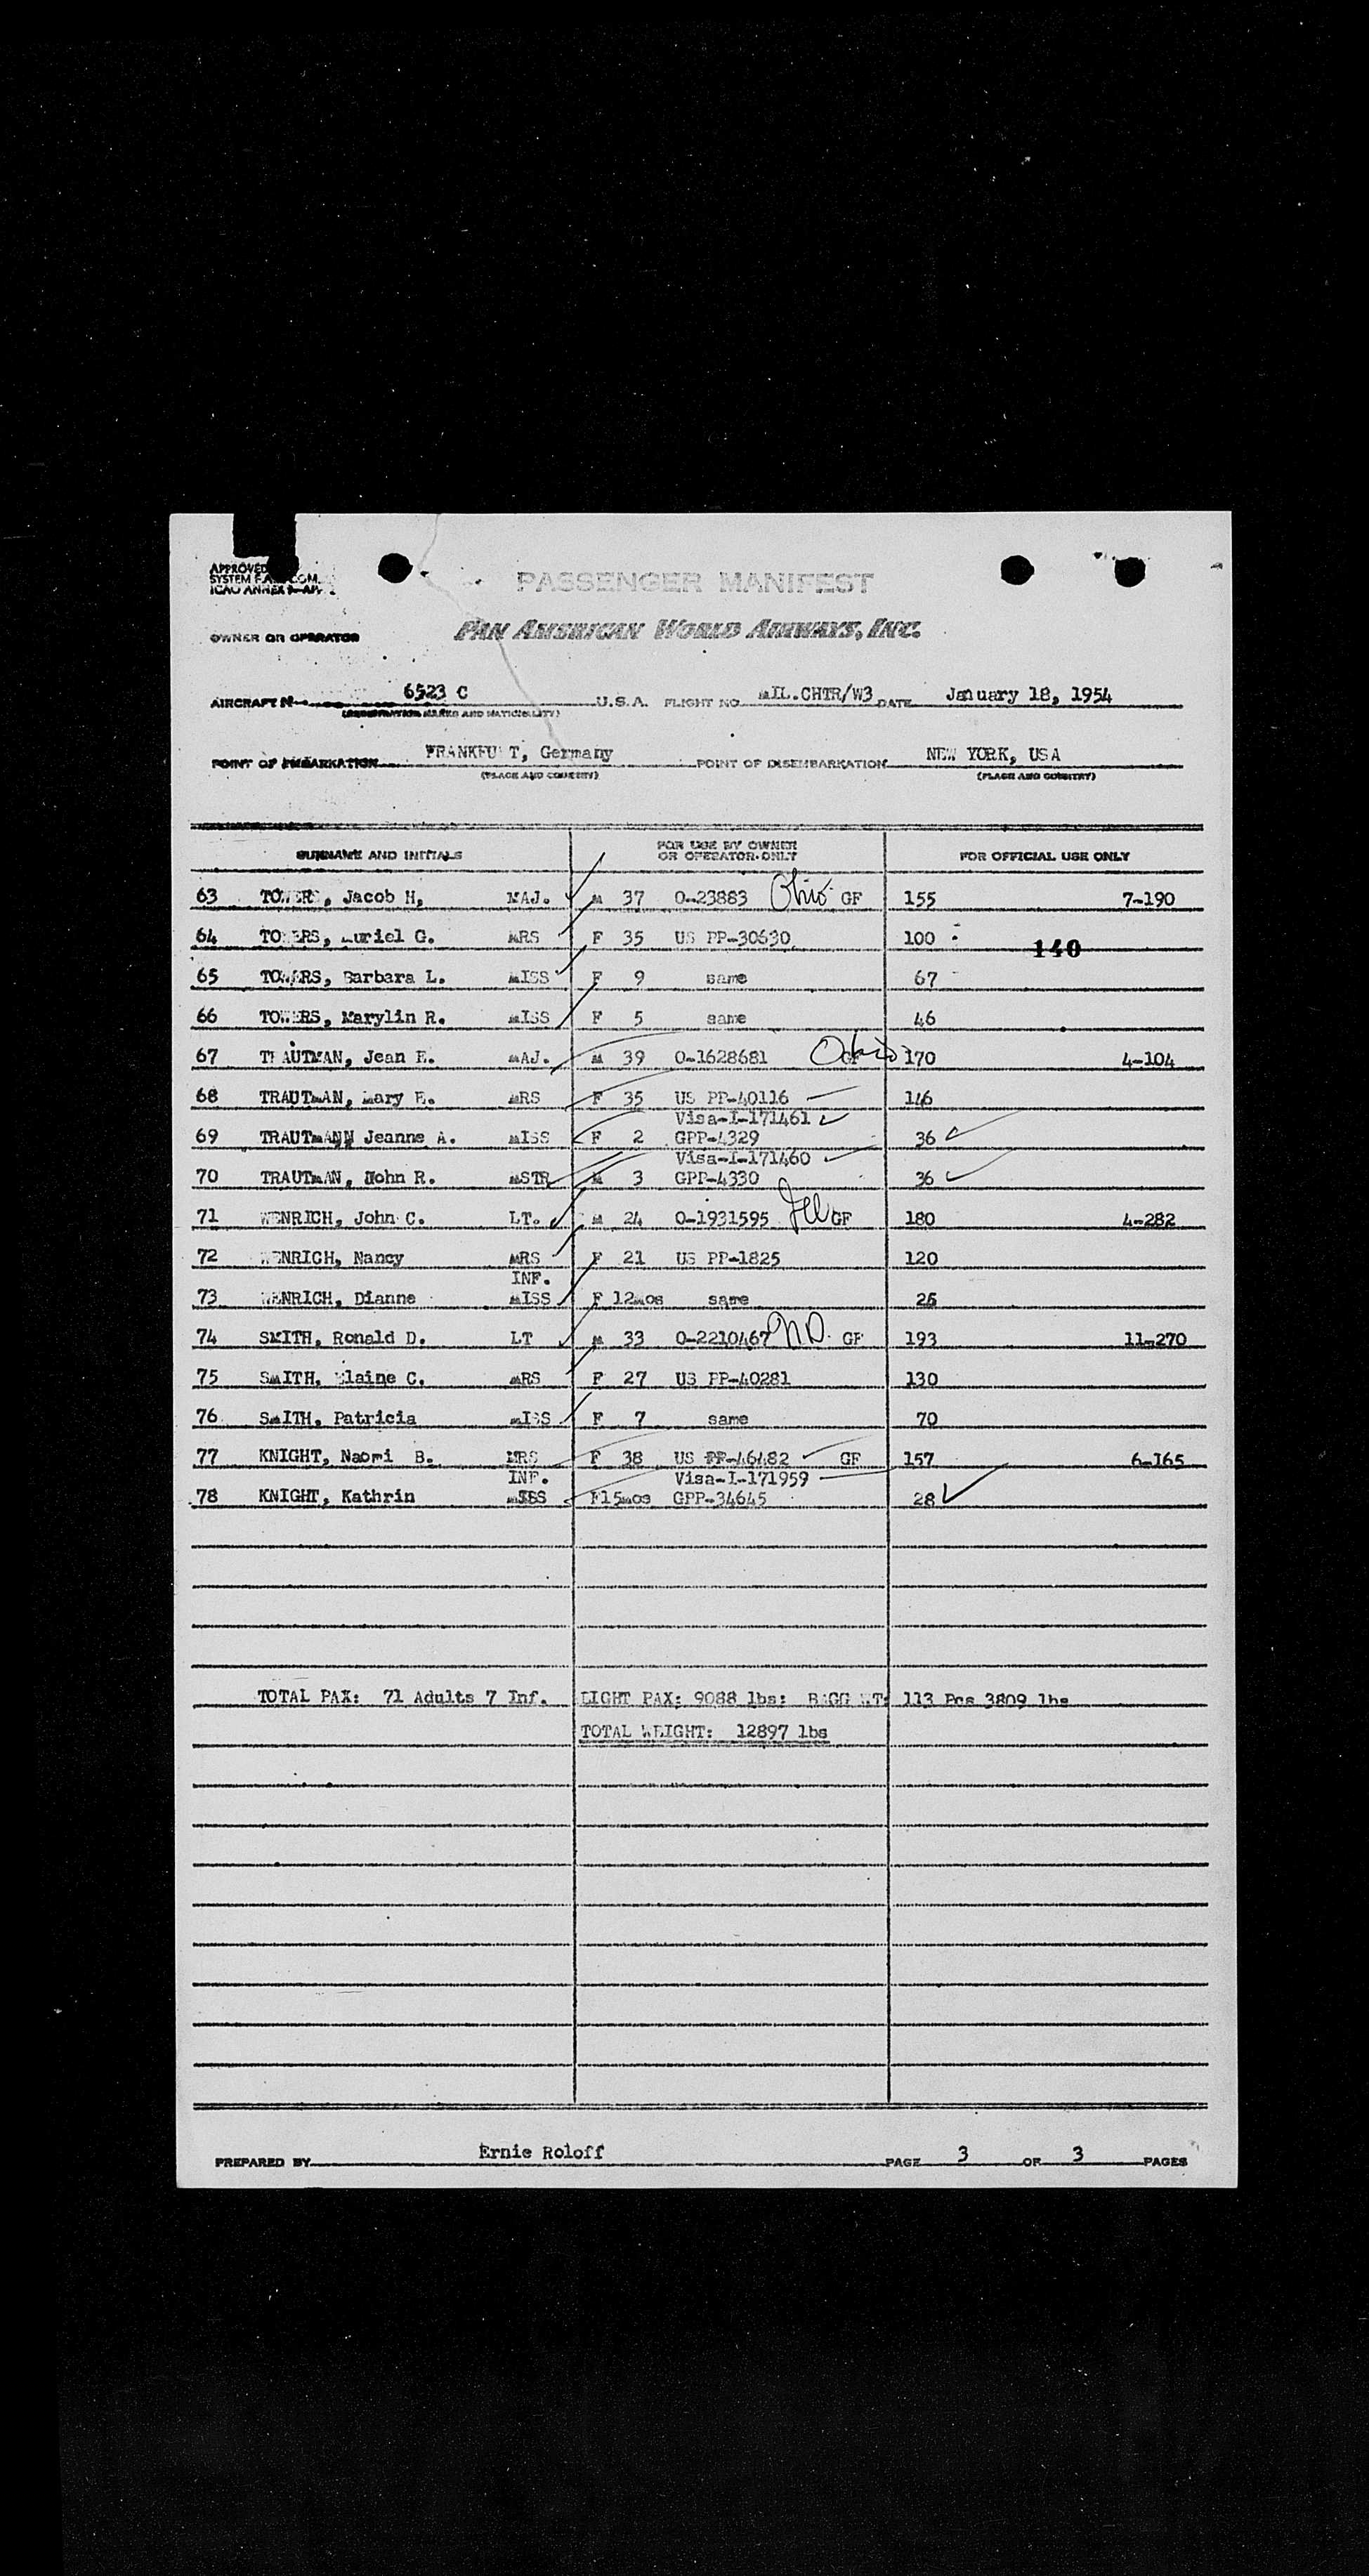 PASSENGER MANIFEST
OWNER OR OPERATOR PAN AMERICAN WORLD AIRWAYS, INC.
AIRCRAFT No 6523 C U.S.A. FLIGHT NO MIL.CHTR/W3 DATE January 18, 1954
POINT OF EMBARKATION FRANKFU T, Germany POINT OF DISEMBARKATION NEW YORK, USA
(PLACE AND COUNTRY) (PLACE AND COUNTRY)
SURNAME AND INITIALS FOR USE BY OWNER OR OPERATOR ONLY FOR OFFICIAL USE ONLY
63 TOWERS, Jacob H, MAJ. M 37 O-23883 Ohio GF 155 7-190
64 TOWERS, Muriel G. MRS F 35 US PP-30630 100
140
65 TOWERS, Barbara L. MISS F 9 same 67
66 TOWERS, Marylin R. MISS F 5 same 46
67 TRAUTMAN, Jean E. MAJ. M 39 O-1628681 GF 170 4-104
68 TRAUTMAN, Mary E. MRS F 35 US PP-40116 146
Visa-I-171461
69 TRAUTMANN Jeanne A. MISS F 2 GPP-4329 36
Visa-I-171460
70 TRAUTMAN, John R. MSTR M 3 GPP-4330 36
71 WENRICH, John C. LT. M 24 O-1931595 GF 180 4-282
72 WENRICH, Nancy MRS F 21 US PP-1825 120
INF.
73 WENRICH, Dianne MISS F 12mos same 26
74 SMITH, Ronald D. LT M 33 O-2210467 N.D. GF 193 11-270
75 SMITH, Elaine C. MRS F 27 US PP-40281 130
76 SMITH, Patricia MISS F 7 same 70
77 KNIGHT, Naomi B. MRS F 38 US PP-46482 GF 157 6-165
INF. Visa-I-171959
78 KNIGHT, Kathrin MISS F15mos GPP-34645 28
TOTAL PAX: 71 Adults 7 Inf. LIGHT PAX: 9088 lbs: BAGG WT: 113 Pcs 3809 lbs
TOTAL WEIGHT: 12897 lbs
PREPARED BY Ernie Roloff PAGE 3 OF 3 PAGES